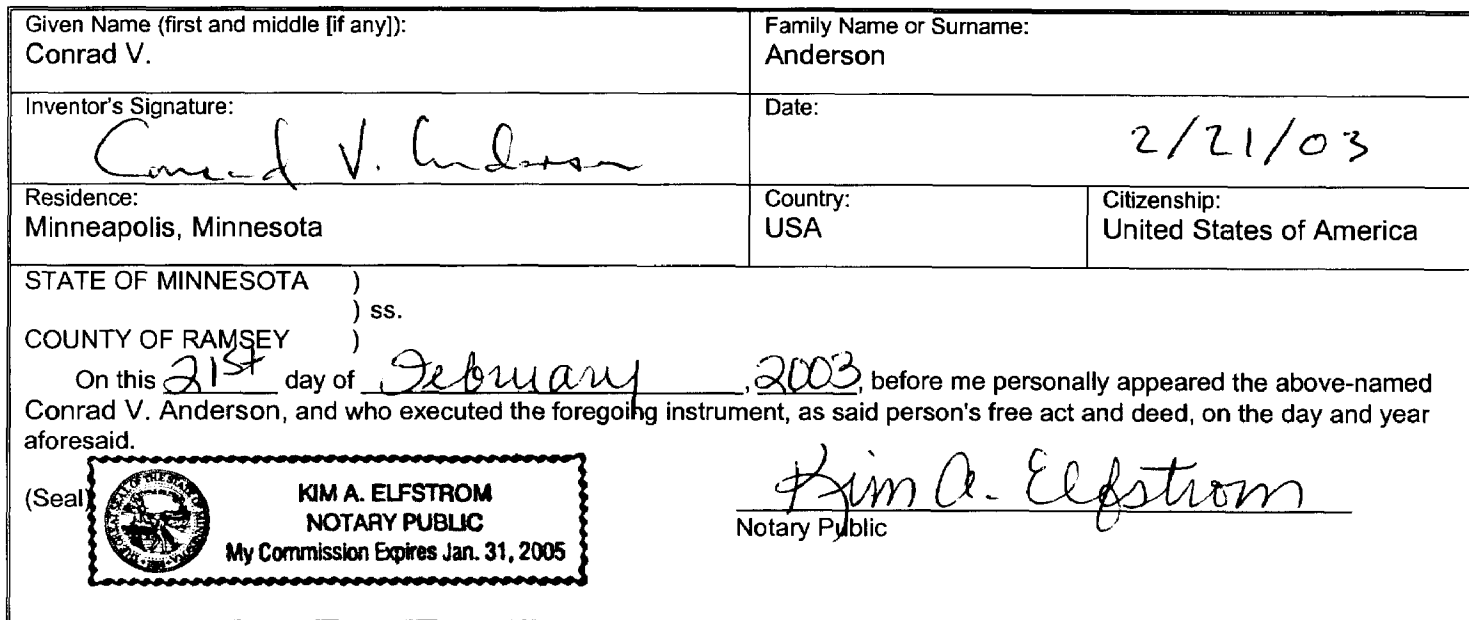 Given Name (first and middle [if any]):
Conrad V.
Family Name or Surname:
Anderson
Inventor's Signature:
Conrad V. Anderson
Date:
2/21/03
Residence:
Minneapolis, Minnesota
Country:
USA
Citizenship:
United States of America
STATE OF MINNESOTA )
) ss.
COUNTY OF RAMSEY )
On this 21st day of February, 2003, before me personally appeared the above-named
Conrad V. Anderson, and who executed the foregoing instrument, as said person's free act and deed, on the day and year
aforesaid.
(Seal)
KIM A. ELFSTROM
NOTARY PUBLIC
My Commission Expires Jan. 31, 2005
Kim A. Elfstrom
Notary Public